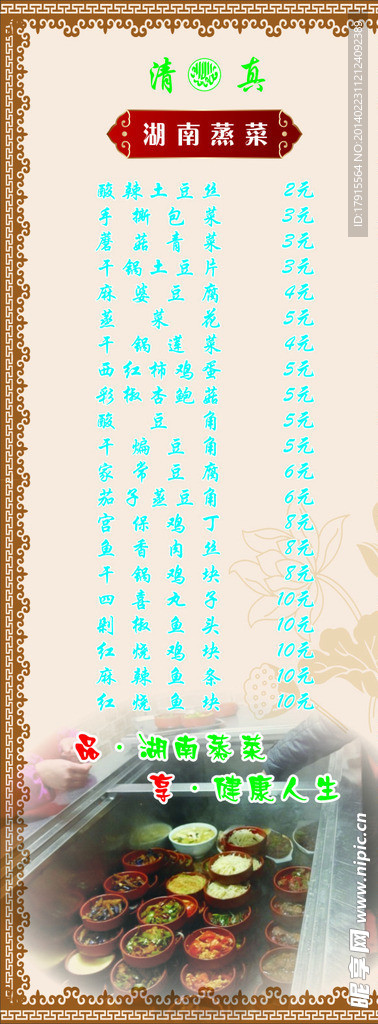 清 真
湖南蒸菜
酸辣土豆丝 2元
手撕包菜 3元
蘑菇青菜 3元
干锅土豆片 3元
麻婆豆腐 4元
蒸菜花 5元
干锅莲菜 4元
西红柿鸡蛋 5元
彩椒杏鲍菇 5元
酸豆角 5元
干煸豆角 5元
家常豆腐 6元
茄子蒸豆角 6元
宫保鸡丁 8元
鱼香肉丝 8元
干锅鸡块 8元
四喜丸子 10元
剁椒鱼头 10元
红烧鸡块 10元
麻辣鱼条 10元
红烧鱼块 10元
品·湖南蒸菜
享·健康人生
昵享网 www.nipic.cn
ID:17915564 NO:20140223112124092389